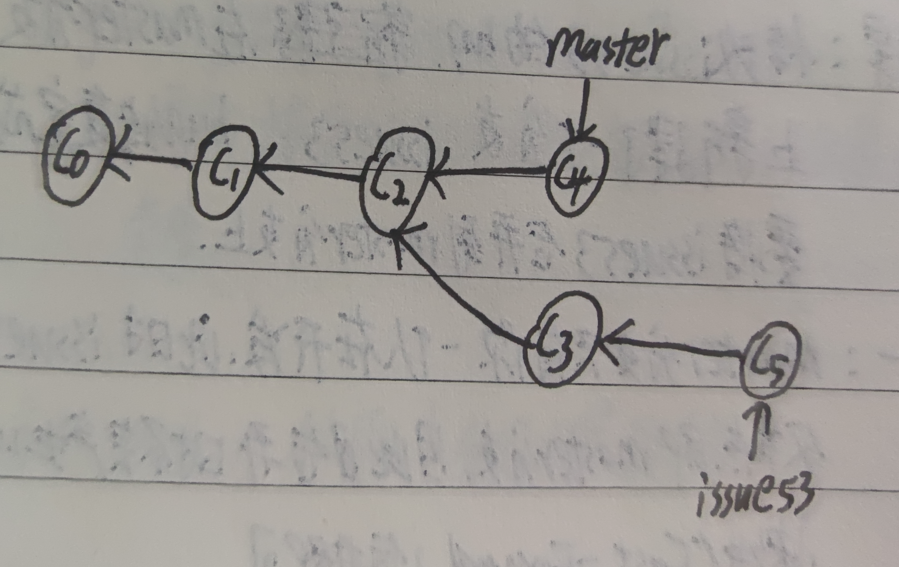 master
C0 C1 C2 C4
C3 C5
issue53